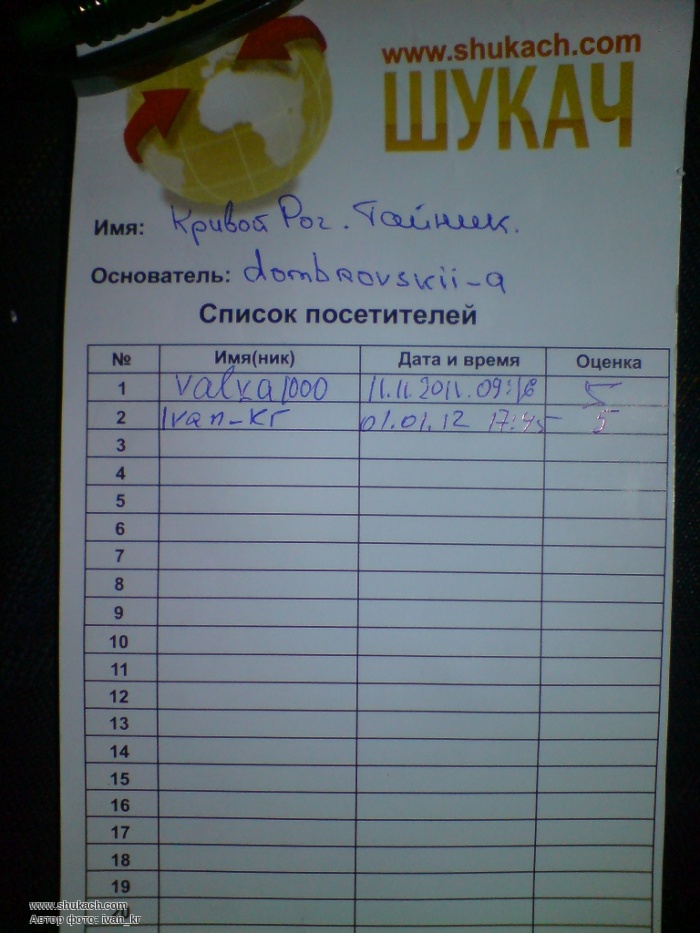 www.shukach.com
ШУКАЧ
Имя: Кривой Рог. Тайник.
Основатель: dombrovskii-a
Список посетителей
№ Имя(ник) Дата и время Оценка
1 valya1000 11.11.2011. 09:16 5
2 Ivan-kr 01.01.12 17:45 5
3
4
5
6
7
8
9
10
11
12
13
14
15
16
17
18
19
20
www.shukach.com
Автор фото: ivan_kr